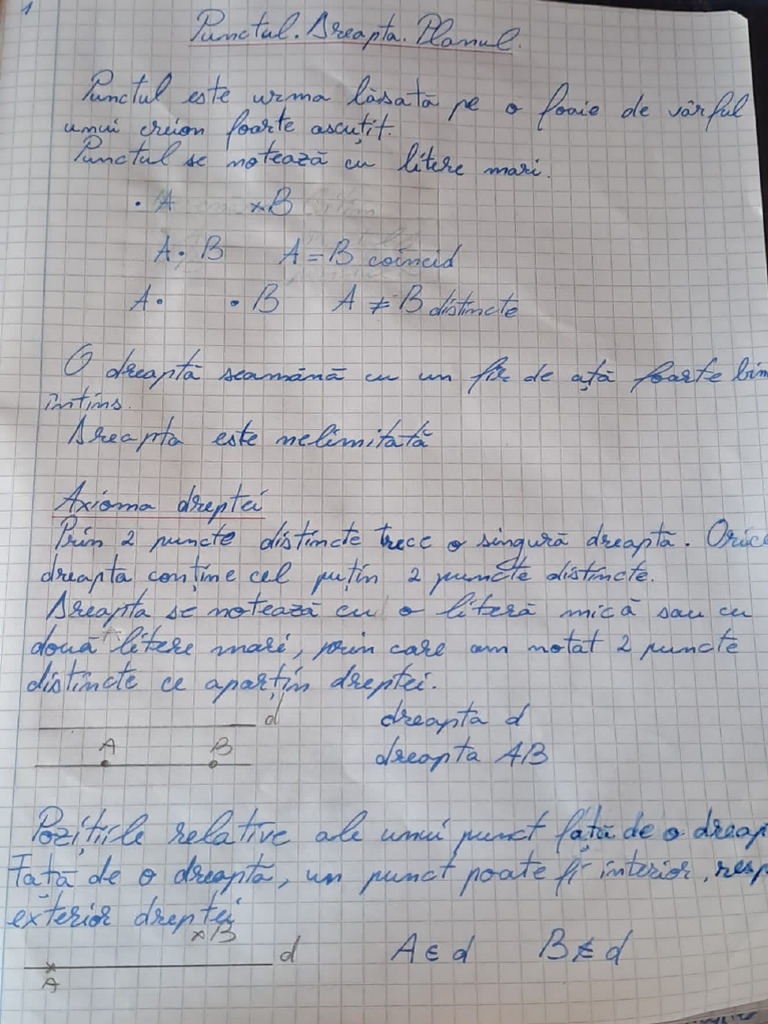 1
Punctul. Dreapta. Planul.
Punctul este urma lăsată pe o foaie de vârful
unui creion foarte ascuțit.
Punctul se notează cu litere mari.
· A ×B
A · B A = B coincid
A · · B A ≠ B distincte
O dreaptă seamănă cu un fir de ață foarte bine
întins.
Dreapta este nelimitată
Axioma dreptei
Prin 2 puncte distincte trece o singură dreaptă. Orice
dreapta conține cel puțin 2 puncte distincte.
Dreapta se notează cu o literă mică sau cu
două litere mari, prin care am notat 2 puncte
distincte ce aparțin dreptei.
d dreapta d
A B dreapta AB
Pozițiile relative ale unui punct față de o dreap
Față de o dreaptă, un punct poate fi interior, resp
exterior dreptei
×B
d A ∈ d B ∉ d
×
A